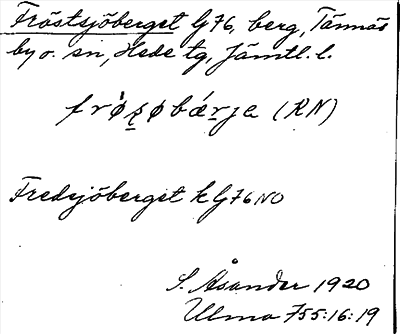 Fröstsjöberget G76, berg, Tännäs
by o. sn, Hede tg, Jämtl. l.
frǿʂøbǽrja (RN)
Fredsjöberget k G76 NO
S. Åsander 1920
Ulma 755:16:19